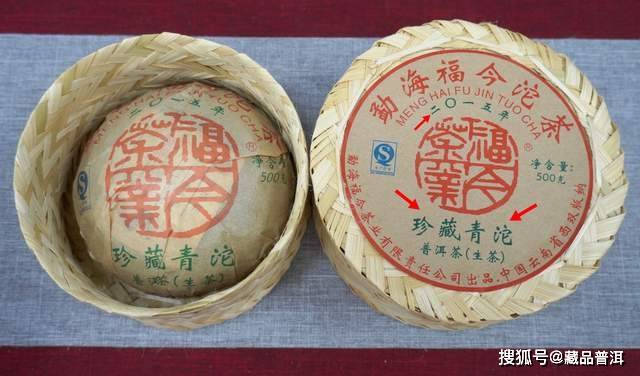 二〇一五年
福今茶業
净含
500克
珍藏青沱
普洱茶(生茶)
勐海福今沱茶
MENG HAI FU JIN TUO CHA
二〇一五年
福今茶業
®
净含量:
500克
珍藏青沱
普洱茶(生茶)
勐海福今茶业有限责任公司出品.中国云南省西双版纳
搜狐号@藏品普洱